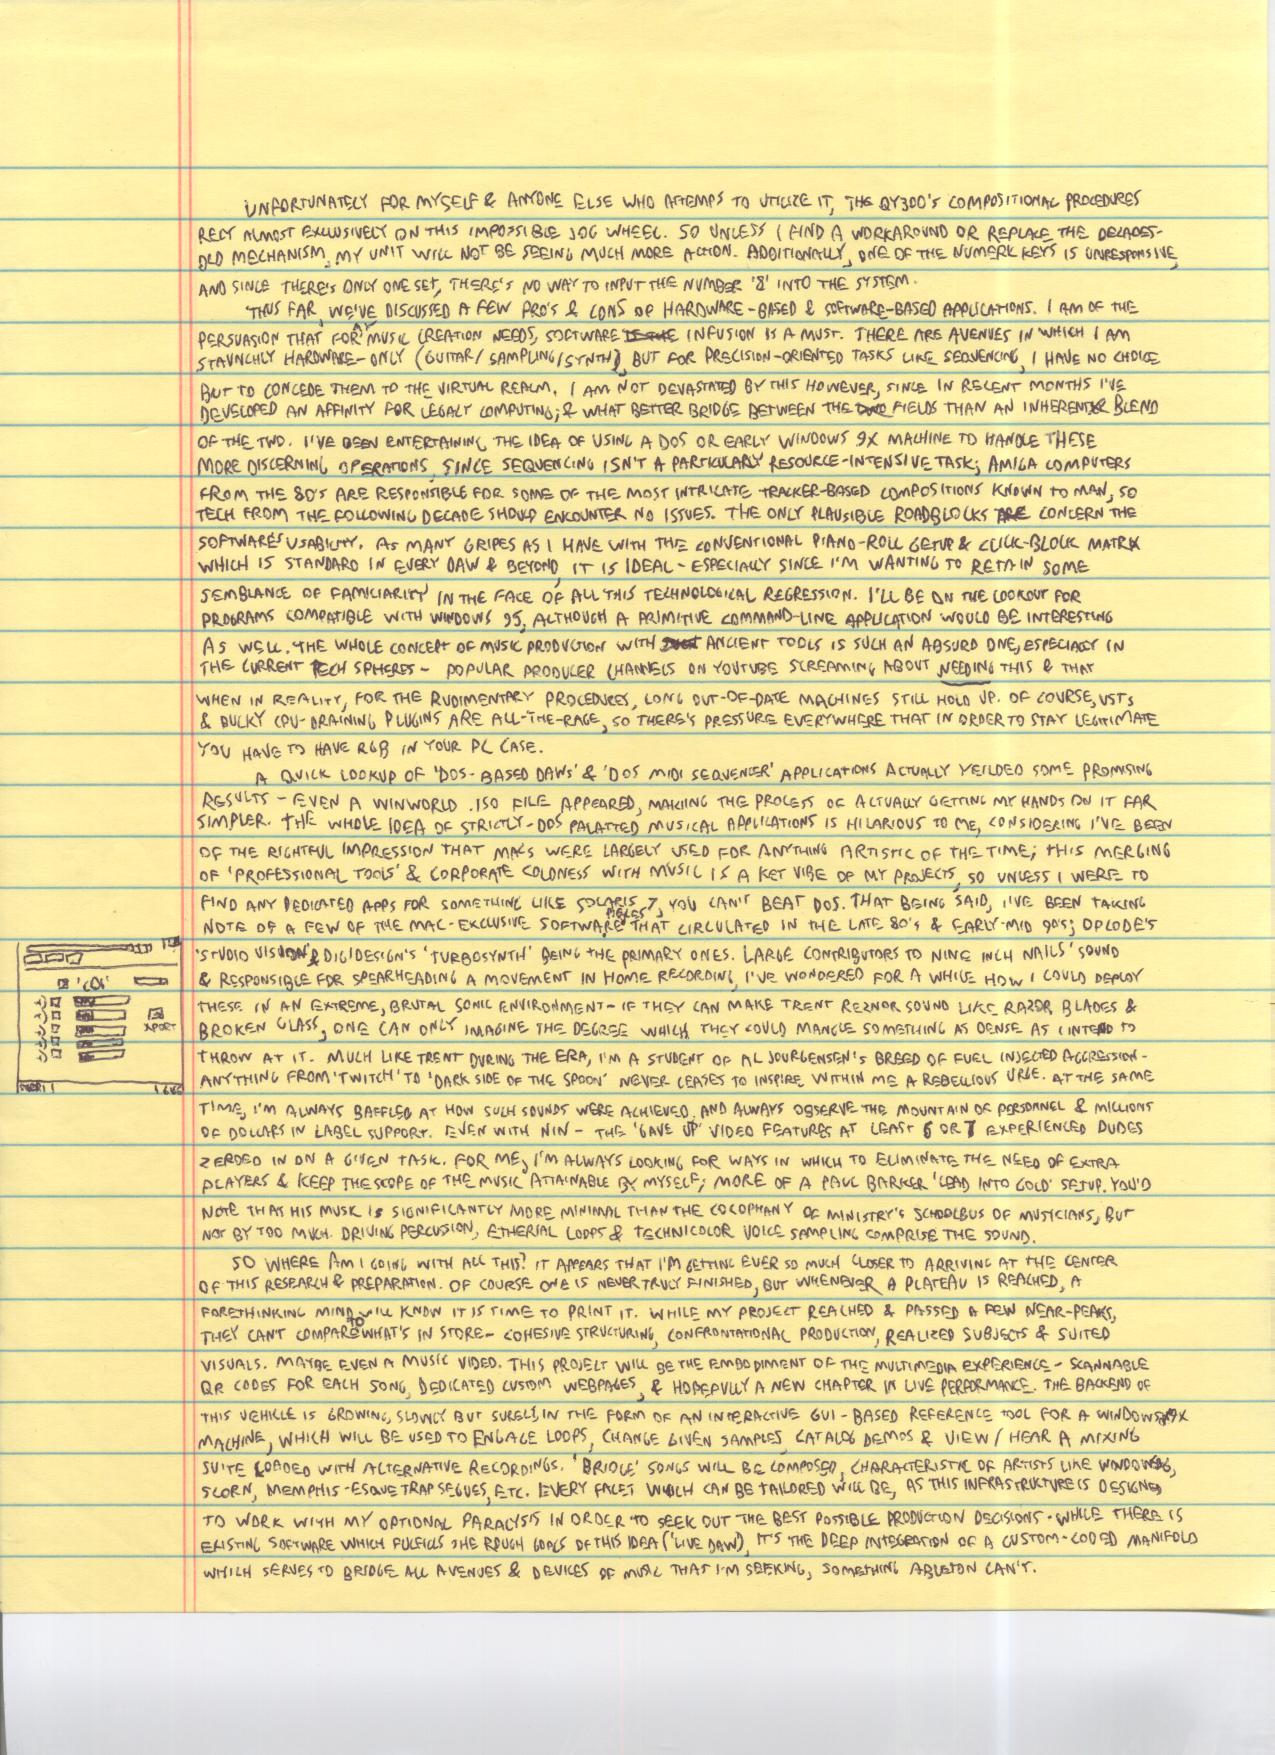 UNFORTUNATELY FOR MYSELF & ANYONE ELSE WHO ATTEMPS TO UTILIZE IT, THE QY300'S COMPOSITIONAL PROCEDURES
RELY ALMOST EXCLUSIVELY ON THIS IMPOSSIBLE JOG WHEEL. SO UNLESS I FIND A WORKAROUND OR REPLACE THE DECADES-
OLD MECHANISM, MY UNIT WILL NOT BE SEEING MUCH MORE ACTION. ADDITIONALLY, ONE OF THE NUMERIC KEYS IS UNRESPONSIVE,
AND SINCE THERE'S ONLY ONE SET, THERE'S NO WAY TO INPUT THE NUMBER '8' INTO THE SYSTEM.
THUS FAR, WE'VE DISCUSSED A FEW PRO'S & CONS OF HARDWARE-BASED & SOFTWARE-BASED APPLICATIONS. I AM OF THE
PERSUASION THAT FOR MY MUSIC CREATION NEEDS, SOFTWARE INFUSION IS A MUST. THERE ARE AVENUES IN WHICH I AM
STAUNCHLY HARDWARE-ONLY (GUITAR/SAMPLING/SYNTH), BUT FOR PRECISION-ORIENTED TASKS LIKE SEQUENCING, I HAVE NO CHOICE
BUT TO CONCEDE THEM TO THE VIRTUAL REALM. I AM NOT DEVASTATED BY THIS HOWEVER, SINCE IN RECENT MONTHS I'VE
DEVELOPED AN AFFINITY FOR LEGACY COMPUTING; & WHAT BETTER BRIDGE BETWEEN THE FIELDS THAN AN INHERENT BLEND
OF THE TWO. I'VE BEEN ENTERTAINING THE IDEA OF USING A DOS OR EARLY WINDOWS 9X MACHINE TO HANDLE THESE
MORE DISCERNING OPERATIONS, SINCE SEQUENCING ISN'T A PARTICULARLY RESOURCE-INTENSIVE TASK; AMIGA COMPUTERS
FROM THE 80'S ARE RESPONSIBLE FOR SOME OF THE MOST INTRICATE TRACKER-BASED COMPOSITIONS KNOWN TO MAN, SO
TECH FROM THE FOLLOWING DECADE SHOULD ENCOUNTER NO ISSUES. THE ONLY PLAUSIBLE ROADBLOCKS CONCERN THE
SOFTWARE'S USABILITY. AS MANY GRIPES AS I HAVE WITH THE CONVENTIONAL PIANO-ROLL SETUP & CLICK-BLOCK MATRIX
WHICH IS STANDARD IN EVERY DAW & BEYOND, IT IS IDEAL - ESPECIALLY SINCE I'M WANTING TO RETAIN SOME
SEMBLANCE OF FAMILIARITY IN THE FACE OF ALL THIS TECHNOLOGICAL REGRESSION. I'LL BE ON THE LOOKOUT FOR
PROGRAMS COMPATIBLE WITH WINDOWS 95, ALTHOUGH A PRIMITIVE COMMAND-LINE APPLICATION WOULD BE INTERESTING
AS WELL. THE WHOLE CONCEPT OF MUSIC PRODUCTION WITH ANCIENT TOOLS IS SUCH AN ABSURD ONE, ESPECIALLY IN
THE CURRENT TECH SPHERES - POPULAR PRODUCER CHANNELS ON YOUTUBE SCREAMING ABOUT NEEDING THIS & THAT
WHEN IN REALITY, FOR THE RUDIMENTARY PROCEDURES, LONG OUT-OF-DATE MACHINES STILL HOLD UP. OF COURSE, VSTS
& BULKY CPU-DRAINING PLUGINS ARE ALL-THE-RAGE, SO THERE'S PRESSURE EVERYWHERE THAT IN ORDER TO STAY LEGITIMATE
YOU HAVE TO HAVE RGB IN YOUR PC CASE.
A QUICK LOOKUP OF 'DOS-BASED DAWS' & 'DOS MIDI SEQUENCER' APPLICATIONS ACTUALLY YEILDED SOME PROMISING
RESULTS - EVEN A WINWORLD .ISO FILE APPEARED, MAKING THE PROCESS OF ACTUALLY GETTING MY HANDS ON IT FAR
SIMPLER. THE WHOLE IDEA OF STRICTLY-DOS PALATTED MUSICAL APPLICATIONS IS HILARIOUS TO ME, CONSIDERING I'VE BEEN
OF THE RIGHTFUL IMPRESSION THAT MACS WERE LARGELY USED FOR ANYTHING ARTISTIC OF THE TIME; THIS MERGING
OF 'PROFESSIONAL TOOLS' & CORPORATE COLDNESS WITH MUSIC IS A KEY VIBE OF MY PROJECTS, SO UNLESS I WERE TO
FIND ANY DEDICATED APPS FOR SOMETHING LIKE SOLARIS 7, YOU CAN'T BEAT DOS. THAT BEING SAID, I'VE BEEN TAKING
NOTE OF A FEW OF THE MAC-EXCLUSIVE SOFTWARE PIECES THAT CIRCULATED IN THE LATE 80'S & EARLY-MID 90'S; OPCODE'S
'STUDIO VISION' & DIGIDESIGN'S 'TURBOSYNTH' BEING THE PRIMARY ONES. LARGE CONTRIBUTORS TO NINE INCH NAILS' SOUND
& RESPONSIBLE FOR SPEARHEADING A MOVEMENT IN HOME RECORDING, I'VE WONDERED FOR A WHILE HOW I COULD DEPLOY
THESE IN AN EXTREME, BRUTAL SONIC ENVIRONMENT - IF THEY CAN MAKE TRENT REZNOR SOUND LIKE RAZOR BLADES &
BROKEN GLASS, ONE CAN ONLY IMAGINE THE DEGREE WHICH THEY COULD MANGLE SOMETHING AS DENSE AS I INTEND TO
THROW AT IT. MUCH LIKE TRENT DURING THE ERA, I'M A STUDENT OF AL JOURGENSEN'S BREED OF FUEL INJECTED AGGRESSION -
ANYTHING FROM 'TWITCH' TO 'DARK SIDE OF THE SPOON' NEVER CEASES TO INSPIRE WITHIN ME A REBELLIOUS URGE. AT THE SAME
TIME, I'M ALWAYS BAFFLED AT HOW SUCH SOUNDS WERE ACHIEVED, AND ALWAYS OBSERVE THE MOUNTAIN OF PERSONNEL & MILLIONS
OF DOLLARS IN LABEL SUPPORT. EVEN WITH NIN - THE 'GAVE UP' VIDEO FEATURES AT LEAST 6 OR 7 EXPERIENCED DUDES
ZEROED IN ON A GIVEN TASK. FOR ME, I'M ALWAYS LOOKING FOR WAYS IN WHICH TO ELIMINATE THE NEED OF EXTRA
PLAYERS & KEEP THE SCOPE OF THE MUSIC ATTAINABLE BY MYSELF; MORE OF A PAUL BARKER 'LEAD INTO GOLD' SETUP. YOU'D
NOTE THAT HIS MUSIC IS SIGNIFICANTLY MORE MINIMAL THAN THE COCOPHANY OF MINISTRY'S SCHOOLBUS OF MUSICIANS, BUT
NOT BY TOO MUCH. DRIVING PERCUSSION, ETHERIAL LOOPS & TECHNICOLOR VOICE SAMPLING COMPRISE THE SOUND.
SO WHERE AM I GOING WITH ALL THIS? IT APPEARS THAT I'M GETTING EVER SO MUCH CLOSER TO ARRIVING AT THE CENTER
OF THIS RESEARCH & PREPARATION. OF COURSE ONE IS NEVER TRULY FINISHED, BUT WHENEVER A PLATEAU IS REACHED, A
FORETHINKING MIND WILL KNOW IT IS TIME TO PRINT IT. WHILE MY PROJECT REACHED & PASSED A FEW NEAR-PEAKS,
THEY CAN'T COMPARE TO WHAT'S IN STORE - COHESIVE STRUCTURING, CONFRONTATIONAL PRODUCTION, REALIZED SUBJECTS & SUITED
VISUALS. MAYBE EVEN A MUSIC VIDEO. THIS PROJECT WILL BE THE EMBODIMENT OF THE MULTIMEDIA EXPERIENCE - SCANNABLE
QR CODES FOR EACH SONG, DEDICATED CUSTOM WEBPAGES, & HOPEFULLY A NEW CHAPTER IN LIVE PERFORMANCE. THE BACKEND OF
THIS VEHICLE IS GROWING, SLOWLY BUT SURELY, IN THE FORM OF AN INTERACTIVE GUI-BASED REFERENCE TOOL FOR A WINDOWS 9X
MACHINE, WHICH WILL BE USED TO ENGAGE LOOPS, CHANGE GIVEN SAMPLES, CATALOG DEMOS & VIEW/HEAR A MIXING
SUITE LOADED WITH ALTERNATIVE RECORDINGS. 'BRIDGE' SONGS WILL BE COMPOSED, CHARACTERISTIC OF ARTISTS LIKE
SCORN, MEMPHIS-ESQUE TRAP SEGUES, ETC. EVERY FACET WHICH CAN BE TAILORED WILL BE, AS THIS INFRASTRUCTURE IS DESIGNED
TO WORK WITH MY OPTIONAL PARALYSIS IN ORDER TO SEEK OUT THE BEST POSSIBLE PRODUCTION DECISIONS. WHILE THERE IS
EXISTING SOFTWARE WHICH FULFILLS THE ROUGH GOALS OF THIS IDEA ('LIVE DAW'), IT'S THE DEEP INTEGRATION OF A CUSTOM-CODED MANIFOLD
WHICH SERVES TO BRIDGE ALL AVENUES & DEVICES OF MUSIC THAT I'M SEEKING, SOMETHING ABLETON CAN'T.
XPORT